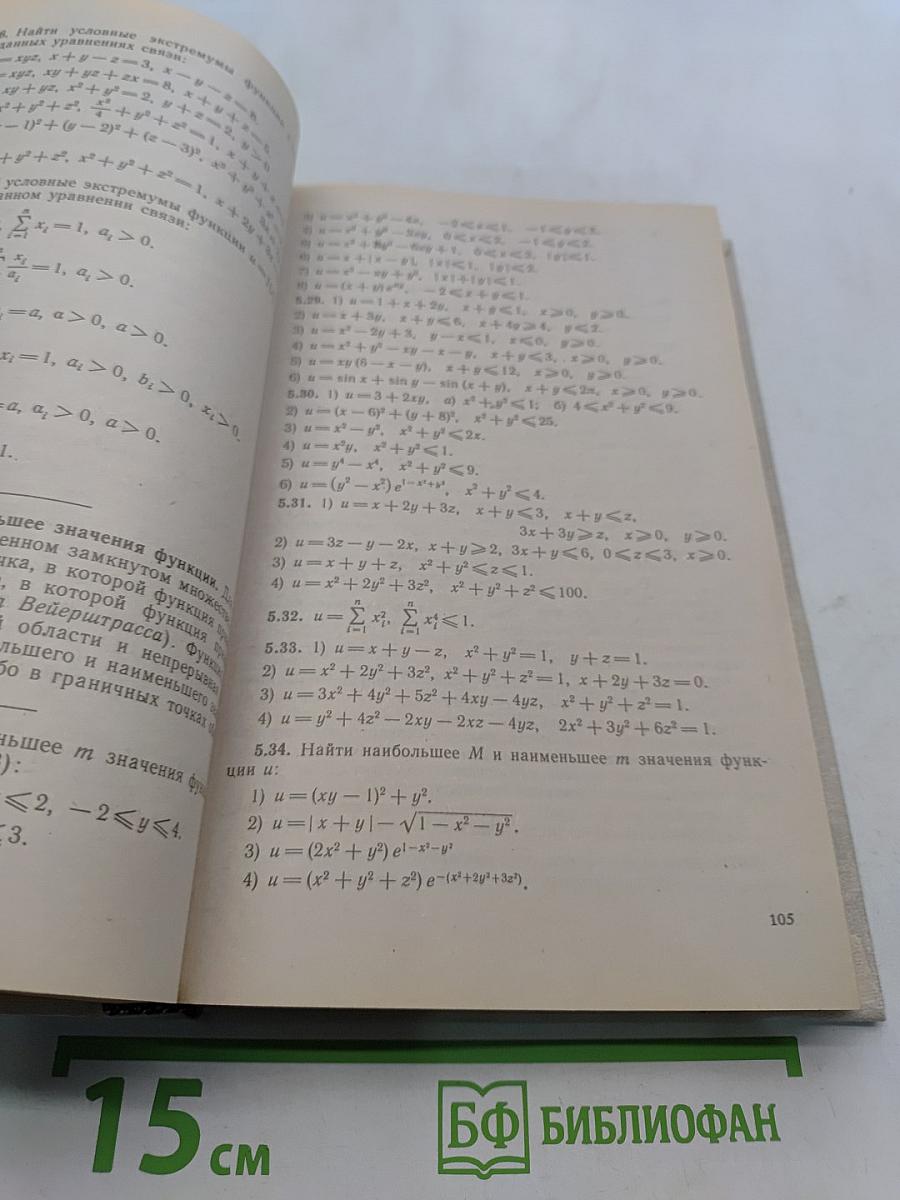 6. Найти условные экстремумы функции
данных уравнениях связи:
=xyz, x+y−z=3, x−y−z=8.
=xyz, xy+yz+zx=8, x+y+z=5.
xy+yz, x²+y²=2, y+z=2, y>0
x²+y²+z², x²/4+y²+z²=1, x+y+
−1)²+(y−2)²+(z−3)², x²+y²+
+y²+z², x²+y²+z²=1, x+2y+3z
условные экстремумы функции u=
анном уравнении связи:
∑ᵢ₌₁ⁿ xᵢ=1, aᵢ>0.
xᵢ/aᵢ=1, aᵢ>0.
=a, a>0, a>0.
xᵢ=1, aᵢ>0, bᵢ>0, xᵢ>0.
=a, aᵢ>0, a>0.
1.
ьшее значения функции.
енном замкнутом множеств
чка, в которой функция
, в которой функция
Вейерштрасса). Функци
й области и непрерывная
льшего и наименьшего
бо в граничных точках
ньшее m значения функ
):
⩽2, −2⩽y⩽4.
⩽3.
6) u=x+|x−y|, |x|⩽1, |y|⩽2.
7) u=x²−xy+y², |x|+|y|⩽1.
8) u=(x+y)eˣʸ, −2⩽x+y⩽1.
5.29. 1) u=1+x+2y, x+y⩽1, x⩾0, y⩾0.
2) u=x+3y, x+y⩽6, x+4y⩾4, y⩽2.
3) u=x²−2y+3, y−x⩽1, x⩽0, y⩾0.
4) u=x²+y²−xy−x−y, x+y⩽3, x⩾0, y⩾0.
5) u=xy(6−x−y), x+y⩽12, x⩾0, y⩾0.
6) u=sin x+sin y−sin (x+y), x+y⩽2π, x⩾0, y⩾0.
5.30. 1) u=3+2xy, а) x²+y²⩽1; б) 4⩽x²+y²⩽9.
2) u=(x−6)²+(y+8)², x²+y²⩽25.
3) u=x²−y², x²+y²⩽2x.
4) u=x²y, x²+y²⩽1.
5) u=y⁴−x⁴, x²+y²⩽9.
6) u=(y²−x²)e^{1−x²+y²}, x²+y²⩽4.
5.31. 1) u=x+2y+3z, x+y⩽3, x+y⩽z,
3x+3y⩾z, x⩾0, y⩾0.
2) u=3z−y−2x, x+y⩾2, 3x+y⩽6, 0⩽z⩽3, x⩾0.
3) u=x+y+z, x²+y²⩽z⩽1.
4) u=x²+2y²+3z², x²+y²+z²⩽100.
5.32. u=∑ᵢ₌₁ⁿ xᵢ², ∑ᵢ₌₁ⁿ xᵢ⁴⩽1.
5.33. 1) u=x+y−z, x²+y²=1, y+z=1.
2) u=x²+2y²+3z², x²+y²+z²=1, x+2y+3z=0.
3) u=3x²+4y²+5z²+4xy−4yz, x²+y²+z²=1.
4) u=y²+4z²−2xy−2xz−4yz, 2x²+3y²+6z²=1.
5.34. Найти наибольшее M и наименьшее m значения функ-
ции u:
1) u=(xy−1)²+y².
2) u=|x+y|−√(1−x²−y²).
3) u=(2x²+y²)e^{1−x²−y²}
4) u=(x²+y²+z²)e^{−(x²+2y²+3z²)}.
105
15 см
БФ БИБЛИОФАН